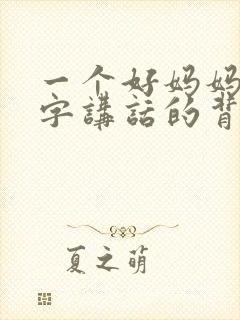 一个好妈妈
字講話的背
夏之萌